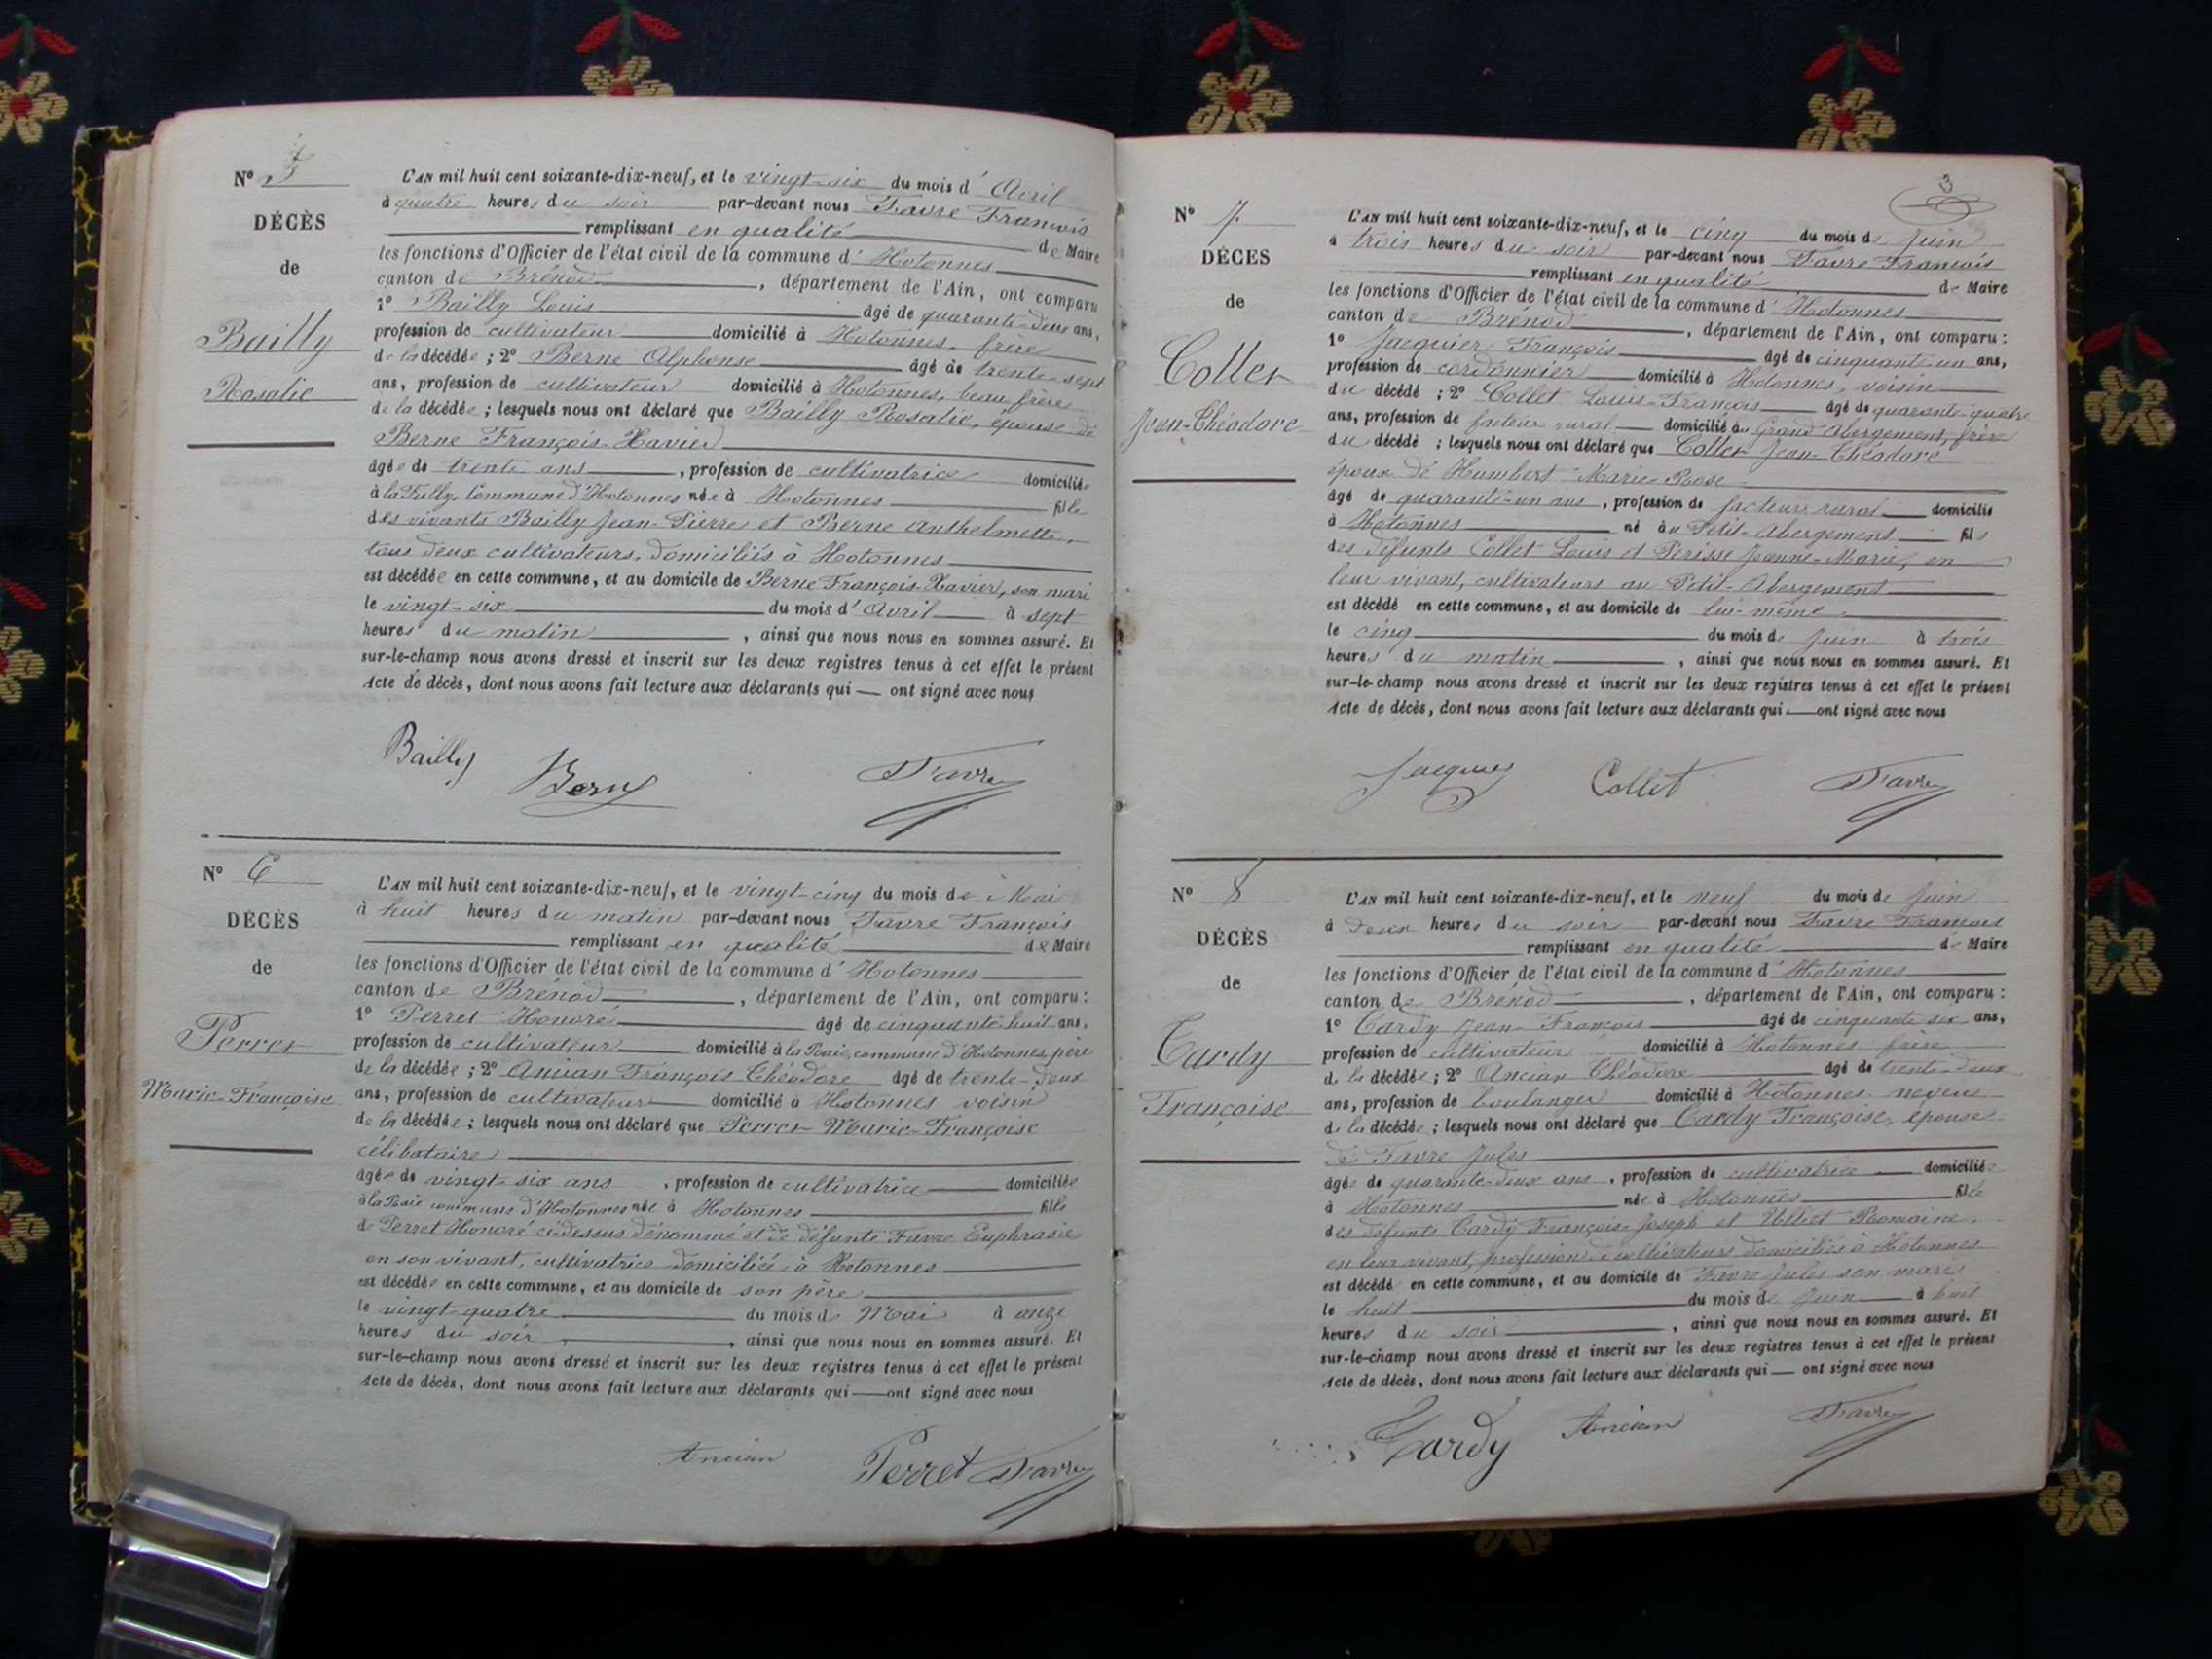 N° 5
DÉCÈS
de
Bailly
Rosalie
L'AN mil huit cent soixante-dix-neuf, et le vingt-six du mois d' Avril
à quatre heures du soir par-devant nous Favre François
remplissant en qualité de Maire
les fonctions d'Officier de l'état civil de la commune d' Hotonnes
canton de Brénod, département de l'Ain, ont comparu
1° Bailly Louis âgé de quarante-deux ans,
profession de cultivateur domicilié à Hotonnes, frère
de la décédée ; 2° Berne Alphonse âgé de trente-sept
ans, profession de cultivateur domicilié à Hotonnes, beau frère
de la décédée ; lesquels nous ont déclaré que Bailly Rosalie, épouse de
Berne François-Xavier
âgée de trente ans, profession de cultivatrice domiciliée
à la Commune d'Hotonnes née à Hotonnes fille
des vivants Bailly Jean-Pierre et Berne Anthelmette,
tous deux cultivateurs, domiciliés à Hotonnes
est décédée en cette commune, et au domicile de Berne François-Xavier, son mari
le vingt-six du mois d' Avril à sept
heures du matin, ainsi que nous nous en sommes assuré. Et
sur-le-champ nous avons dressé et inscrit sur les deux registres tenus à cet effet le présent
Acte de décès, dont nous avons fait lecture aux déclarants qui — ont signé avec nous
Bailly Berne Favre
N° 6
DÉCÈS
de
Perret
Marie-Françoise
L'AN mil huit cent soixante-dix-neuf, et le vingt-cinq du mois de Mai
à huit heures du matin par-devant nous Favre François
remplissant en qualité de Maire
les fonctions d'Officier de l'état civil de la commune d' Hotonnes
canton de Brénod, département de l'Ain, ont comparu :
1° Perret Honoré âgé de cinquante-huit ans,
profession de cultivateur domicilié à la Raie, commune d'Hotonnes, père
de la décédée ; 2° Ancian François Théodore âgé de trente-deux
ans, profession de cultivateur domicilié à Hotonnes voisin
de la décédée ; lesquels nous ont déclaré que Perret Marie-Françoise
célibataire
âgée de vingt-six ans, profession de cultivatrice domiciliée
à la Raie commune d'Hotonnes née à Hotonnes fille
de Perret Honoré ci-dessus dénommé et de défunte Favre Euphrasie
en son vivant, cultivatrice domiciliée à Hotonnes
est décédée en cette commune, et au domicile de son père
le vingt-quatre du mois de Mai à onze
heures du soir, ainsi que nous nous en sommes assuré. Et
sur-le-champ nous avons dressé et inscrit sur les deux registres tenus à cet effet le présent
Acte de décès, dont nous avons fait lecture aux déclarants qui — ont signé avec nous
Ancian Perret Favre
3
N° 7
DÉCÈS
de
Collet
Jean-Théodore
L'AN mil huit cent soixante-dix-neuf, et le cinq du mois de Juin
à trois heures du soir par-devant nous Favre François
remplissant en qualité de Maire
les fonctions d'Officier de l'état civil de la commune d' Hotonnes
canton de Brénod, département de l'Ain, ont comparu :
1° Jacquier François âgé de cinquante-un ans,
profession de cordonnier domicilié à Hotonnes, voisin
du décédé ; 2° Collet Louis-François âgé de quarante-quatre
ans, profession de facteur rural domicilié au Grand Abergement, frère
du décédé ; lesquels nous ont déclaré que Collet Jean-Théodore
époux de Humbert Marie-Rose
âgé de quarante-un ans, profession de facteur rural domicilié
à Hotonnes né au Petit-Abergement fils
des défunts Collet Louis et Périsse Jeanne-Marie, en
leur vivant, cultivateurs au Petit-Abergement
est décédé en cette commune, et au domicile de lui-même
le cinq du mois de Juin à trois
heures du matin, ainsi que nous nous en sommes assuré. Et
sur-le-champ nous avons dressé et inscrit sur les deux registres tenus à cet effet le présent
Acte de décès, dont nous avons fait lecture aux déclarants qui — ont signé avec nous
Jacquier Collet Favre
N° 8
DÉCÈS
de
Cardy
Françoise
L'AN mil huit cent soixante-dix-neuf, et le neuf du mois de Juin
à deux heures du soir par-devant nous Favre François
remplissant en qualité de Maire
les fonctions d'Officier de l'état civil de la commune d' Hotonnes
canton de Brénod, département de l'Ain, ont comparu :
1° Cardy Jean-François âgé de cinquante six ans,
profession de cultivateur domicilié à Hotonnes frère
de la décédée ; 2° Ancian Théodore âgé de trente-deux
ans, profession de boulanger domicilié à Hotonnes neveu
de la décédée ; lesquels nous ont déclaré que Cardy Françoise, épouse
de Favre Jules
âgée de quarante-deux ans, profession de cultivatrice domiciliée
à Hotonnes née à Hotonnes fille
des défunts Cardy François-Joseph et Ulliet Romaine,
en leur vivant, profession de cultivateurs domiciliés à Hotonnes
est décédé en cette commune, et au domicile de Favre Jules son mari
le huit du mois de Juin à huit
heures du soir, ainsi que nous nous en sommes assuré. Et
sur-le-champ nous avons dressé et inscrit sur les deux registres tenus à cet effet le présent
Acte de décès, dont nous avons fait lecture aux déclarants qui — ont signé avec nous
Cardy Ancian Favre